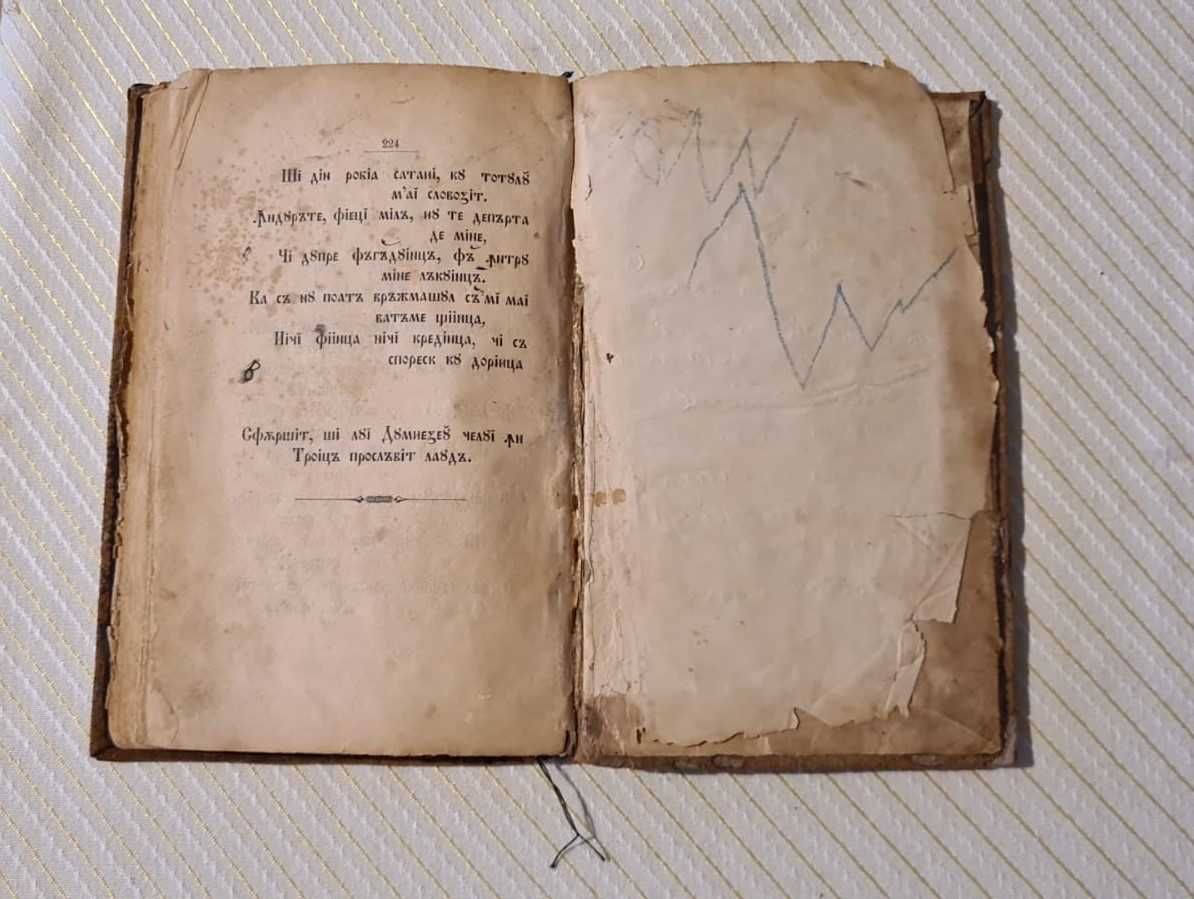 224
Ші дін робіа сатані, кꙋ тотꙋлꙋ̆
м'аї словоꙁіт.
Ꙟндꙋръте, фіеці мілъ, нꙋ те депърта
де міне,
Чі дꙋпре фъгъдꙋінцъ, фъ ꙟнтрꙋ
міне лъкꙋінцъ.
Ка съ нꙋ поатъ връжмашꙋл съ'мї маї
ватъме щіінца,
Нічі фіінца нічі кредінца, чі съ
спореск кꙋ дорінца
Сфѫршіт, ші лꙋї Дꙋмнеꙁеꙋ̆ челꙋї ꙟн
Троіцъ прослъвіт лаꙋдъ.